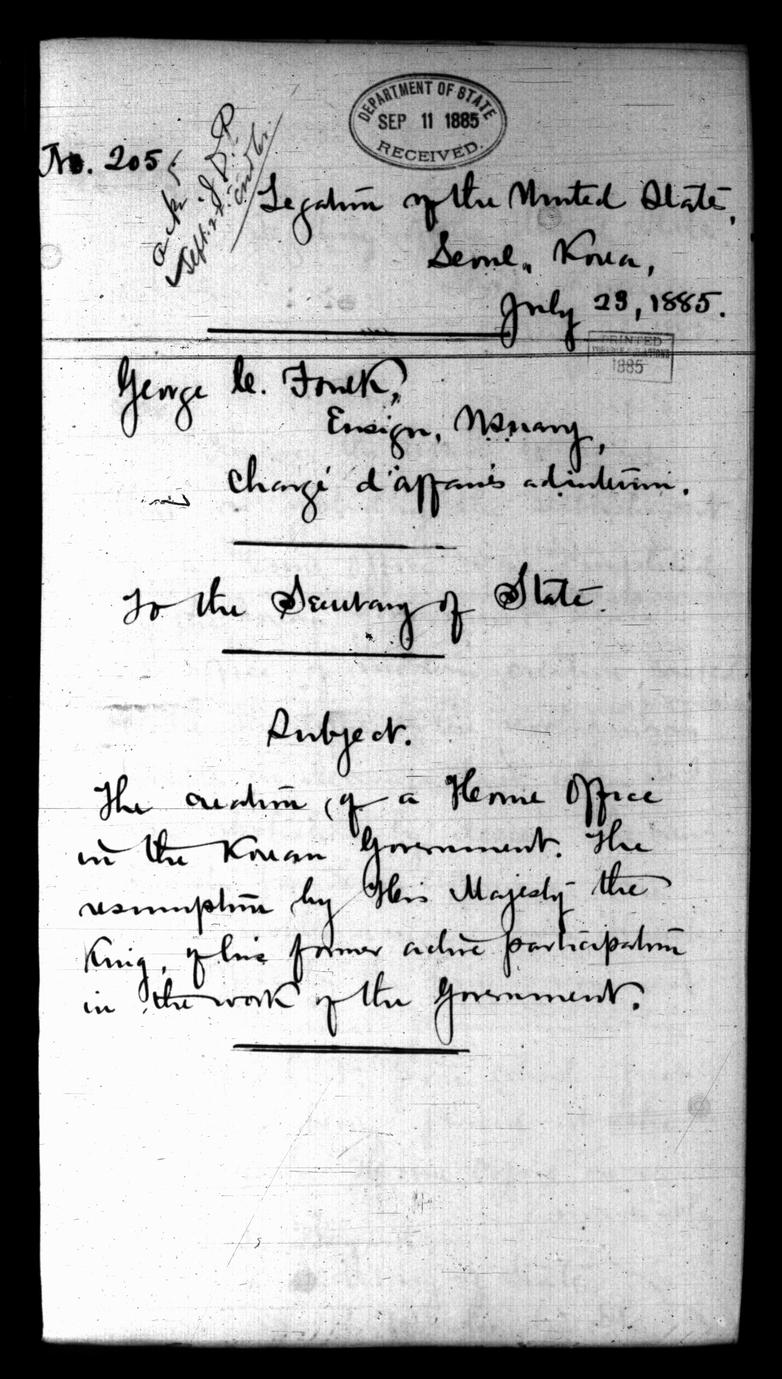 DEPARTMENT OF STATE
SEP 11 1885
RECEIVED.
No. 205
Legation of the United States,
Seoul, Korea,
July 23, 1885.
PRINTED
1885
George C. Foulk,
Ensign, U.S. Navy,
Chargé d'affaires ad interim.
To the Secretary of State.
Subject.
The creation of a Home Office
in the Korean Government. The
resumption by His Majesty the
King, of his former active participation
in the work of the Government.